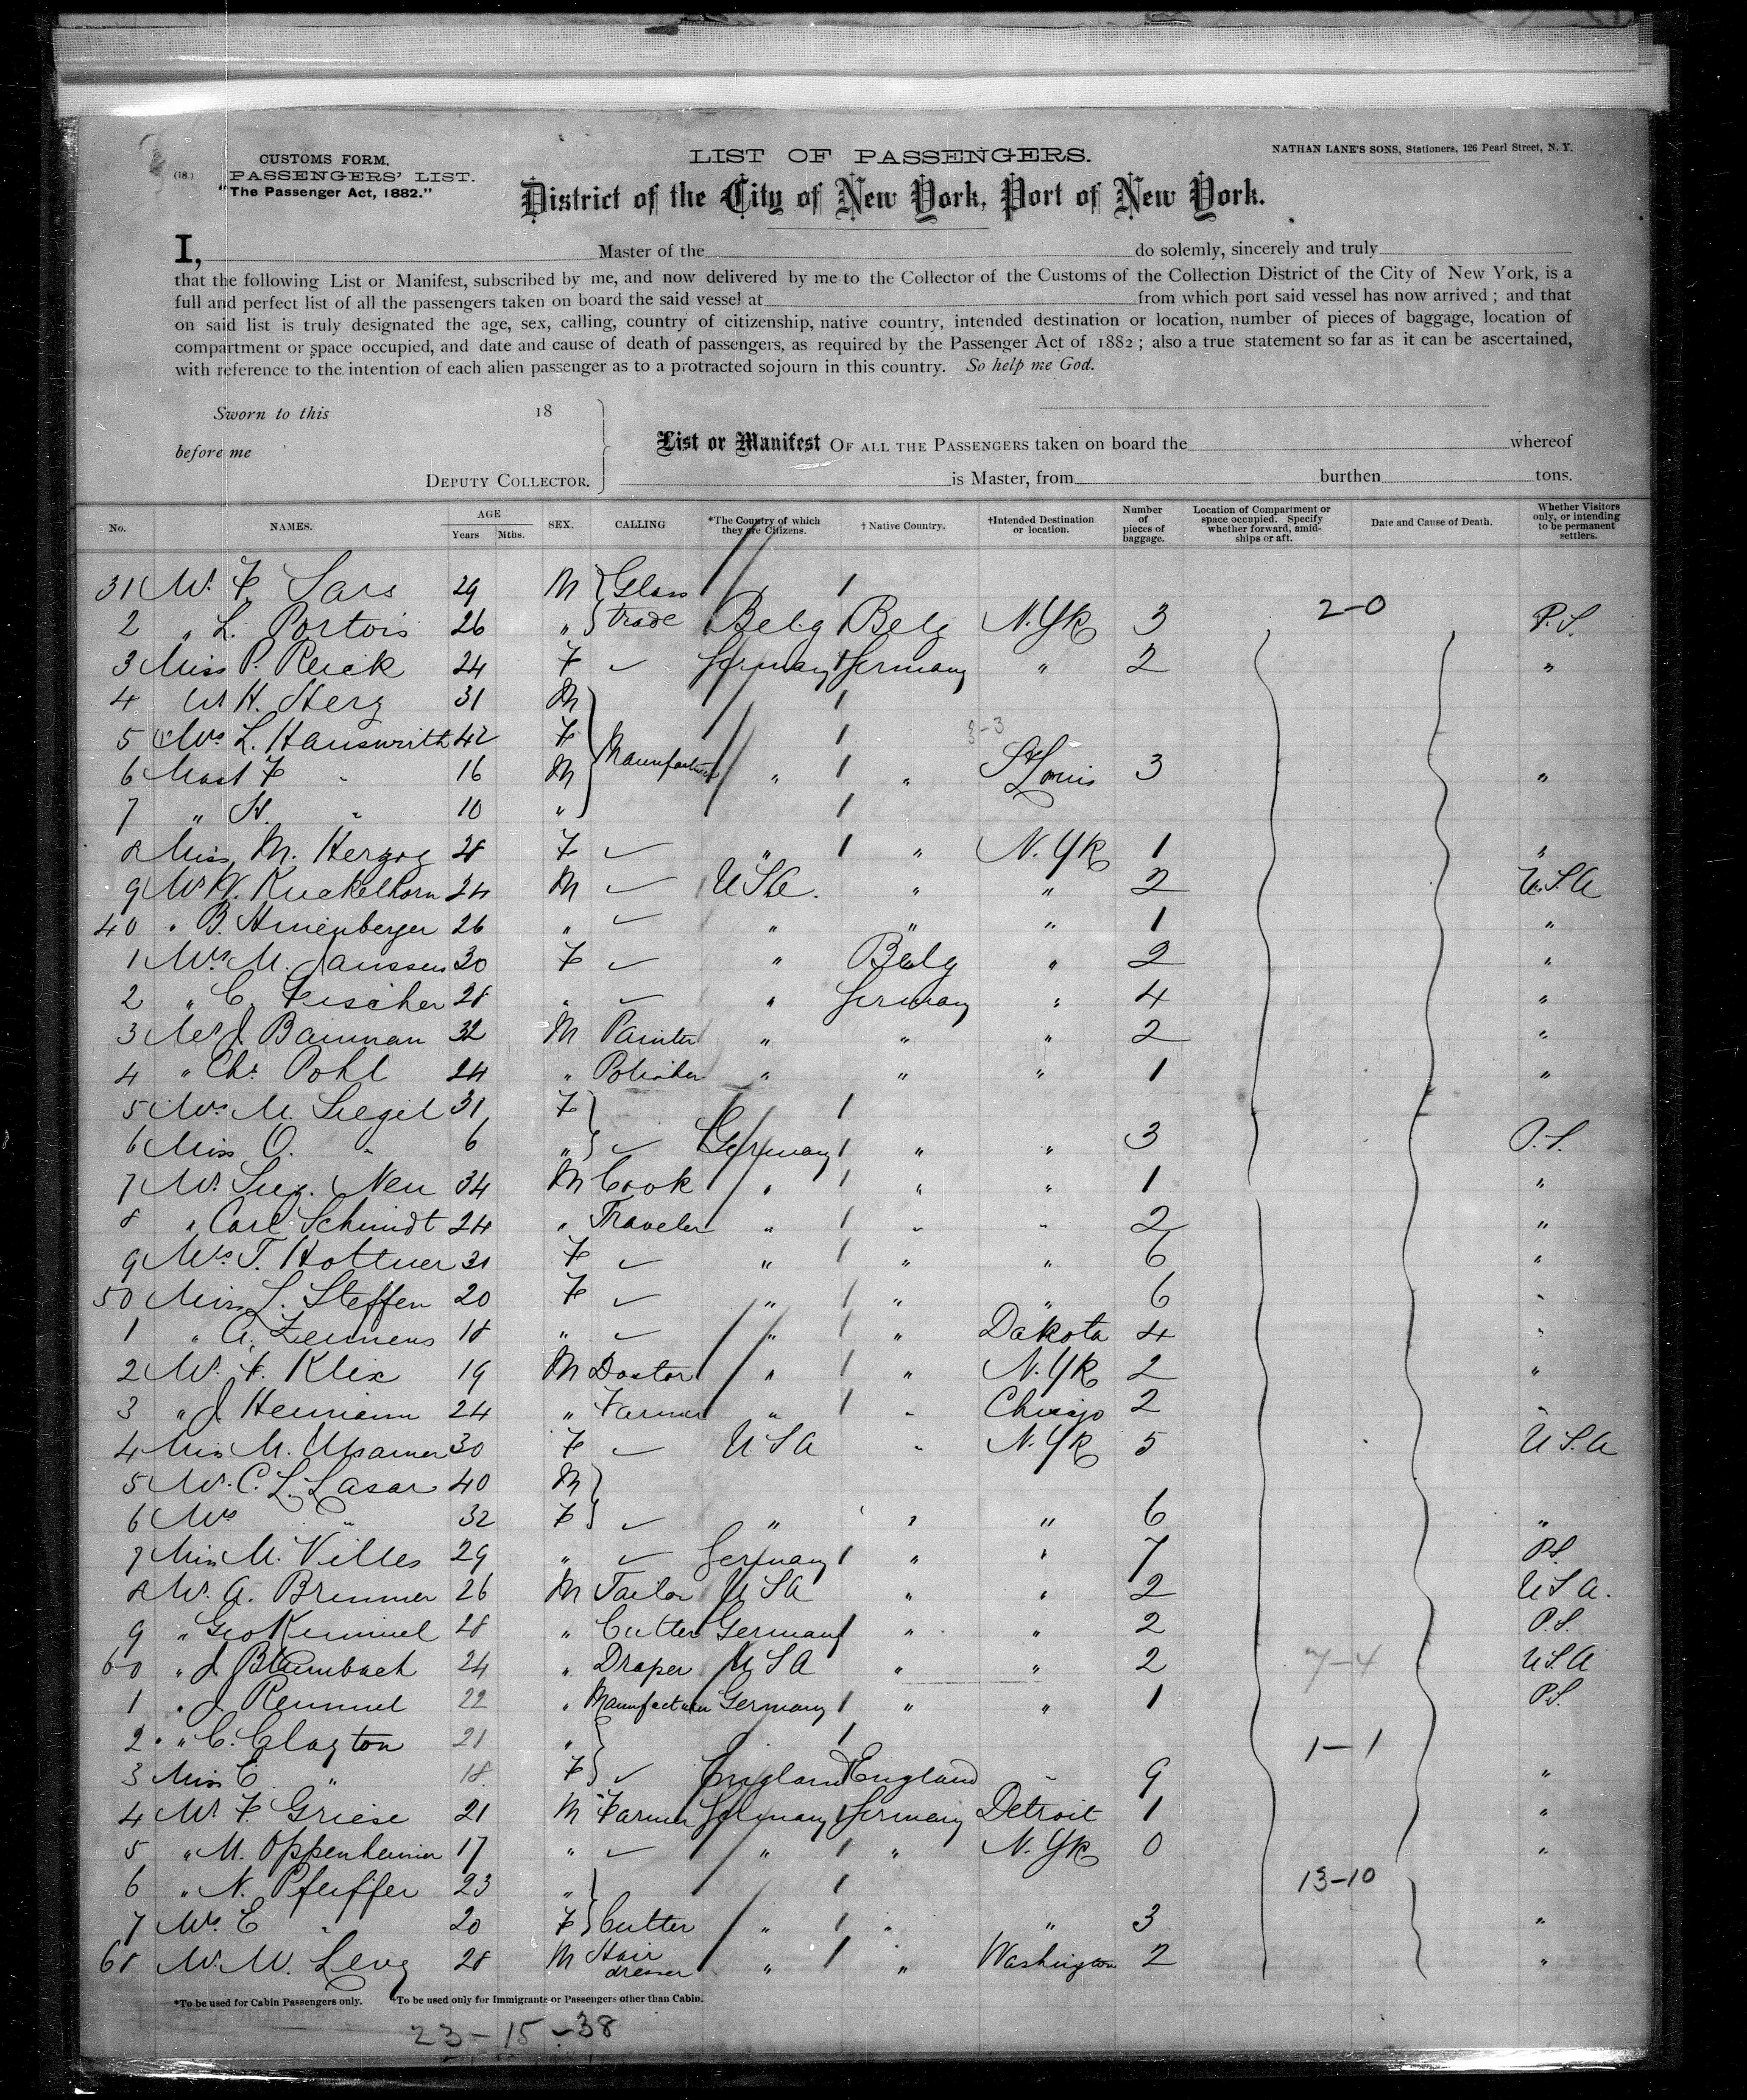 (18.)
CUSTOMS FORM,
PASSENGERS' LIST.
"The Passenger Act, 1882."
LIST OF PASSENGERS.
NATHAN LANE'S SONS, Stationers, 126 Pearl Street, N. Y.
District of the City of New York, Port of New York.
I, Master of the do solemnly, sincerely and truly
that the following List or Manifest, subscribed by me, and now delivered by me to the Collector of the Customs of the Collection District of the City of New York, is a
full and perfect list of all the passengers taken on board the said vessel at from which port said vessel has now arrived ; and that
on said list is truly designated the age, sex, calling, country of citizenship, native country, intended destination or location, number of pieces of baggage, location of
compartment or space occupied, and date and cause of death of passengers, as required by the Passenger Act of 1882 ; also a true statement so far as it can be ascertained,
with reference to the intention of each alien passenger as to a protracted sojourn in this country. So help me God.
Sworn to this 18
before me
DEPUTY COLLECTOR.
List or Manifest OF ALL THE PASSENGERS taken on board the whereof
is Master, from burthen tons.
No. NAMES. AGE Years Mths. SEX. CALLING *The Country of which they are Citizens. † Native Country. †Intended Destination or location. Number of pieces of baggage. Location of Compartment or space occupied. Specify whether forward, amidships or aft. Date and Cause of Death. Whether Visitors only, or intending to be permanent settlers.
31 Mr. F. Sars 29 M Glass
2 " L. Portois 26 " trade Belg Belg N.Yk 3 2-0 P.S.
3 Miss P. Reick 24 F Germany Germany " 2 "
4 Mr H. Herz 31 M
5 Mrs L. Hauswirth 42 F 3-3
6 Mast F " 16 M Manufacturer " " St Louis 3 "
7 " H. " 10 "
8 Miss M. Herzog 28 F " " N.Yk 1 "
9 Mr W. Kuckelhorn 24 M USA. " " 2 U.S.A
40 " B. 26 " " " " 1 "
1 Mrs M. Janssen 30 F " Belg " 2 "
2 " C. Fischer 28 " " Germany " 4 "
3 Mr J Bauman 32 M Painter " " " 2 "
4 " Chs. Pohl 24 " Polisher " " " 1 "
5 Mrs M. Siegel 31 F
6 Miss O. " 6 " Germany " " 3 P.S.
7 Mr. Sieg. Neu 34 M Cook " " " 1 "
8 " Carl Schmidt 24 " Traveler " " " 2 "
9 Mrs T. Hottner 31 F " " " 6 "
50 Miss L. Steffen 20 F " " " 6 "
1 " A. Zermens 18 " " " Dakota 4 "
2 Mr. F. Klix 19 M Doctor " " N.Yk 2 "
3 " J. Hermann 24 " Farmer " " Chicago 2 "
4 Miss M. 30 F USA " N.Yk 5 U S.A
5 Mr. C. L. Lasar 40 M
6 Mrs " 32 F " " " 6 "
7 Miss M. Villes 29 " Germany " " 7 P.S.
8 Mr. A. Brunner 26 M Tailor USA " " 2 U S A.
9 " Geo Kimmel 28 " Cutter Germany " " 2 P.S.
60 " J. Blumbach 24 " Draper USA " " 2 7-4 U.S.A
1 " J. Remmel 22 " Manufacturer Germany " " 1 P.S.
2 " C. Clayton 21 " 1-1
3 Miss C " 18 F England England " 9 "
4 Mr F Griese 21 M Farmer Germany Germany Detroit 1 "
5 " M. Oppenheimer 17 " " " N.Yk 0 "
6 " N. Pfeiffer 23 " 13-10
7 Mrs. E " 20 F Cutter " " " 3 "
68 Mr. M. Levy 28 M Hair dresser " " Washington 2 "
*To be used for Cabin Passengers only. †To be used only for Immigrants or Passengers other than Cabin.
23-15-38